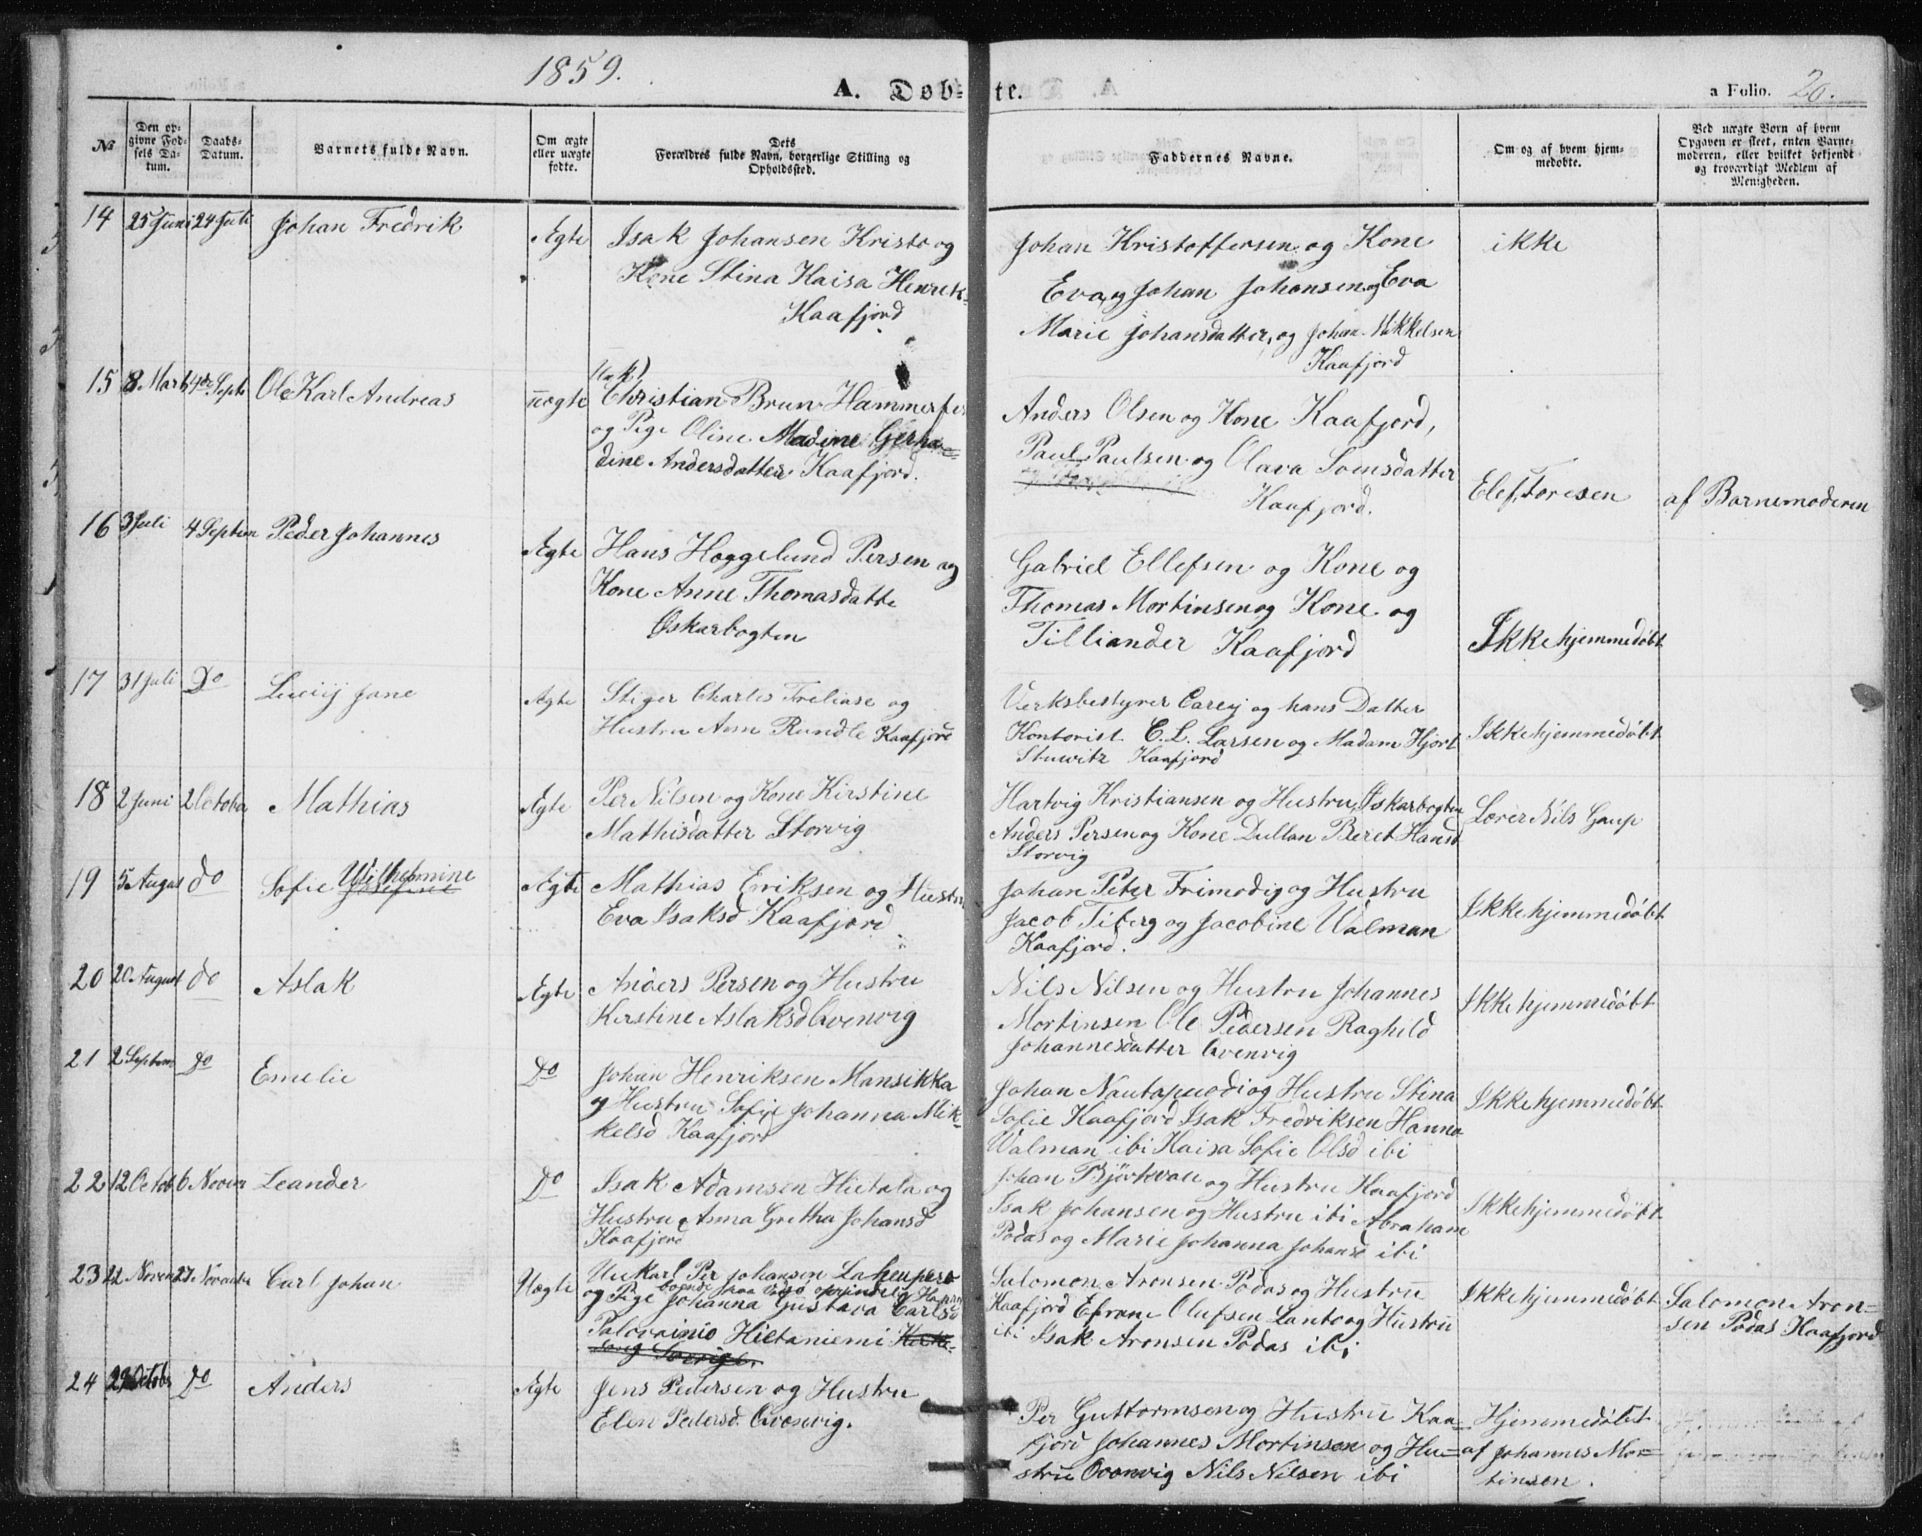 1859.
A. Døb-te.
a Folio. 20.
No
Den opgivne Fødsels Datum.
Daabs-Datum.
Barnets fulde Navn.
Om ægte eller uægte fødte.
Dets Forældres fulde Navn, borgerlige Stilling og Opholdssted.
Faddernes Navne.
Om og af hvem hjemmedøbte.
Ved uægte Børn af hvem Opgaven er skeet, enten Barnemoderen, eller hvilket bekjendt og troværdigt Medlem af Menigheden.
14 25 Juni 24 Juli Johan Fredrik Ægte
Isak Johansen Kristo og
Kone Stina Kaisa Henrik-
Kaafjord
Johan Kristoffersen og Kone
Eva og Johan Johansen og Eva
Marie Johansdatter, og Johan Mikkelsen
Kaafjord
ikke
15 8 Marts 4de Septb Ole Karl Andreas uægte
Christian Brun Hammerfes
og Pige Oline Madine Gerha-
dine Andersdatter Kaafjord.
Anders Olsen og Kone Kaafjord,
Paul Paulsen og Olava Somsdatter
Kaafjord.
Elef Toresen
af Barnemoderen
16 3 Juli 4 Septem Peder Johannes Ægte
Hans Hoggelund Persen og
Kone Anne Thomasdatte
Øskarbogten
Gabriel Ellefsen og Kone og
Thomas Mortinsen og Kone og
Tilliander Kaafjord
Ikke hjemmedøbt
17 31 Juli Do Luciij Jane Ægte
Stiger Charles Treliase og
Hustru Ann Rundle Kaafjord
Verksbestyrer Carey og hans Datter
Kontorist C. L. Larsen og Madam Hjort
Stuwitz Kaafjord
Ikke hjemmedøbt
18 2 Juni 2 October Mathias Ægte
Per Nilsen og Kone Kirstine
Mathisdatter Storvig
Hartvig Kristiansen og Hustru Øskarbogten
Anders Persen og Kone Dullan Beret Hansd
Storvig
Lærer Nils Gaup
19 5 August do Sofie Wilhelmine Ægte
Mathias Eriksen og Hustru
Eva Isaksd Kaafjord
Johan Peter Frimodig og Hustru
Jacob Tiberg og Jacobine Walman
Kaafjord.
Ikke hjemmedøbt
20 20 August do Aslak Ægte
Anders Persen og Hustru
Kirstine Aslaksd Qvenvig
Nils Nilsen og Hustru Johannes
Mortinsen Ole Pedersen Raghild
Johannesdatter Qvenvig
Ikke hjemmedøbt
21 2 Septem Do Emelie Do
Johan Henriksen Mansikka
og Hustru Sofie Johanna Mik-
kelsd Kaafjord
Johan Nautapuodi og Hustru Stina
Sofie Kaafjord Isak Fredriksen Hanna
Walman ibi Kaisa Sofie Olsd ibi
Ikke hjemmedøbt
22 12 Octob 6 Novem Leander Do
Isak Adamsen Hietala og
Hustru Anna Gretha Johansd
Kaafjord
Johan Björkvau og Hustru Kaafjord
Isak Johansen og Hustru ibi Abraham
Podas og Marie Johanna Johansd ibi
Ikke hjemmedøbt
23 22 Novem 27 November Carl Johan Uægte
Unkarl Per Johansen
og Pige Johanna Gustava Carlsd
Palovainio Hietaniemi
Salomon Aronsen Podas og Hustru
Kaafjord Efram Olufsen Lanto og Hustru
ibi Isak Aronsen Podas ibi
Ikke hjemmedøbt
Salomon Aron-
sen Podas Kaafjord
24 29 October Do Anders Ægte
Jens Pedersen og Hustru
Elen Pedersd. Qvenvig.
Per Guttormsen og Hustru Kaa-
fjord Johannes Mortinsen og Hu-
stru Qvenvig Nils Nilsen ibi
Hjemmedøbt
af Johannes Mor-
tinsen.